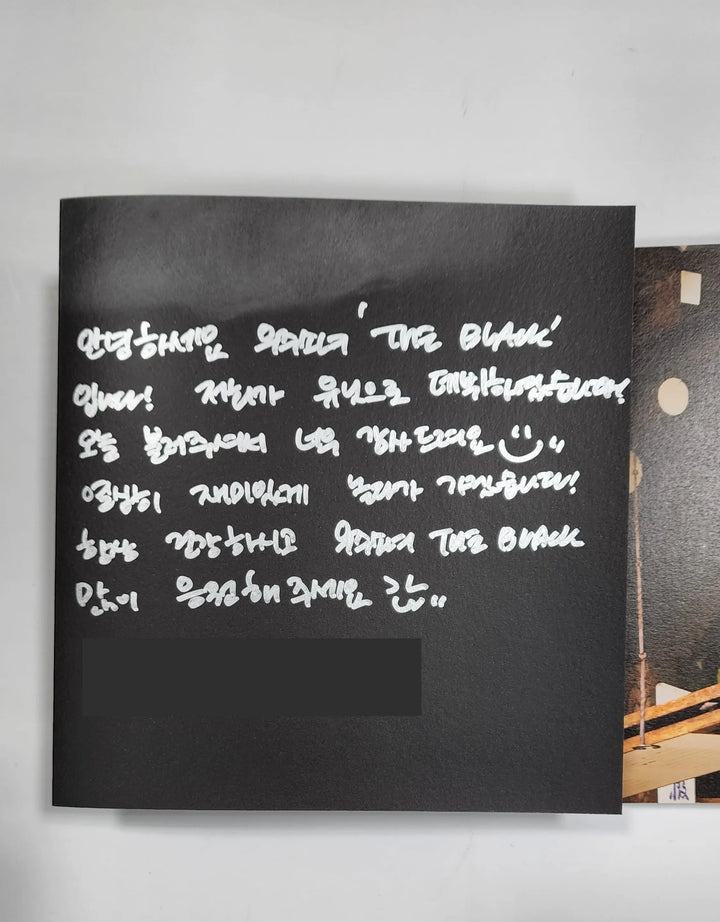 안녕하세요 위키미키 'THE BLACK'
입니다! 저희가 유닛으로 데뷔하였습니다!
오늘 불러주셔서 너무 감사드려요
열심히 재미있게 놀다가 가겠습니다!
항상 건강하시고 위키미키 THE BLACK
많이 응원해 주세요